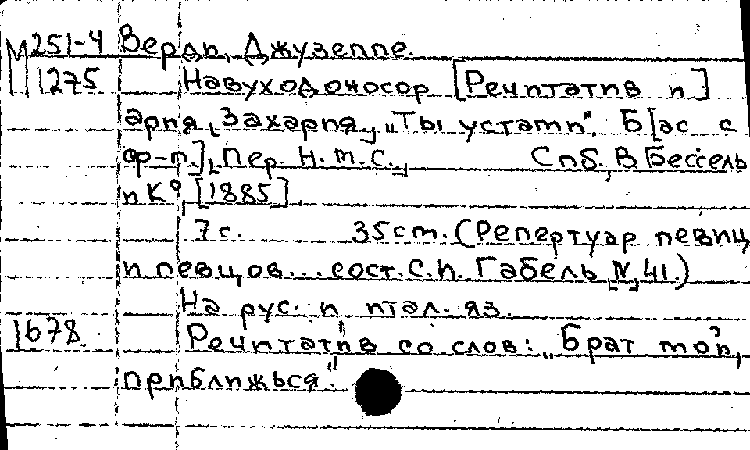 М251-4 Верди, Джузеппе.
1275 Навуходоносор [Речитатив и]
ария „Захария„ „Ты устами". Б[ас с
ф-п.], Пер. Н.М.С., Спб. В.Бессель
и К°, [1885]
7 с. 35 cm. (Репертуар певиц
и певцов... сост. С.И. Габель, N, 41.)
На рус. и итал. яз.
1678 Речитатив со слов: „Брат мой,
приближься!"